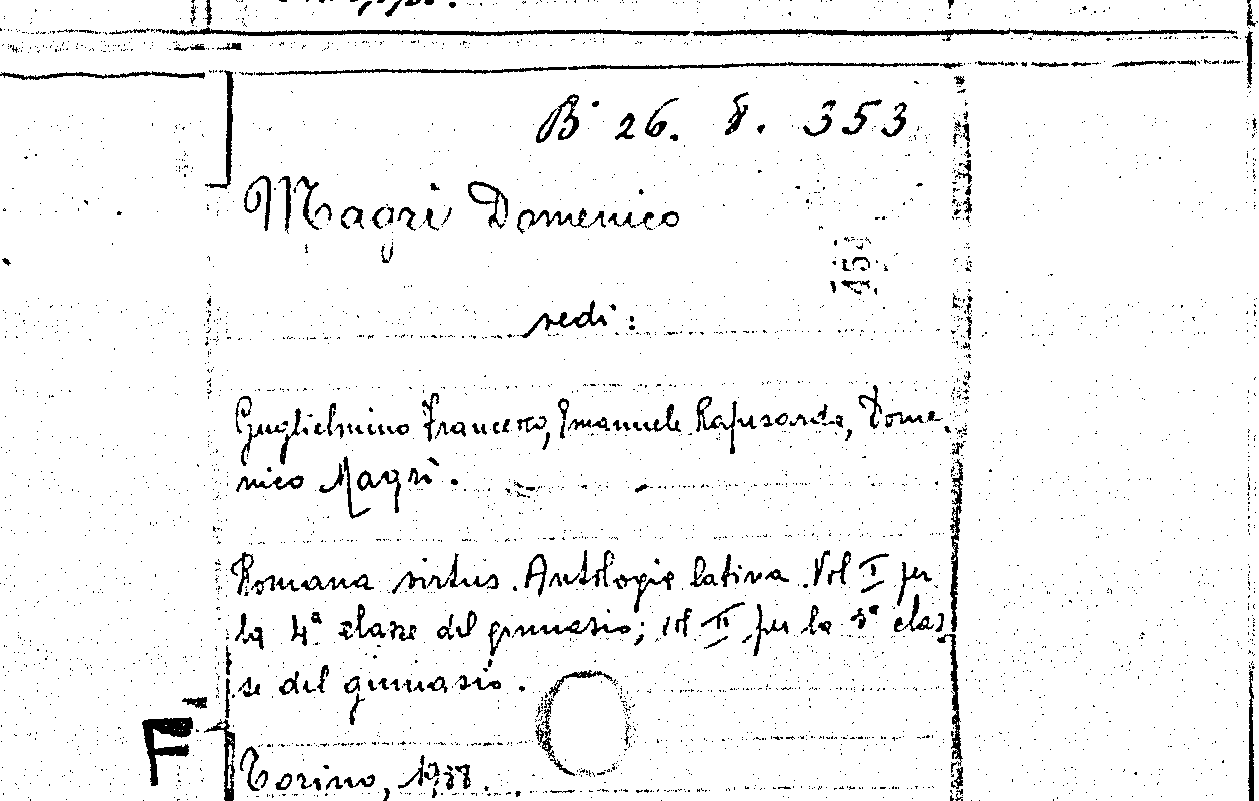 B. 26. 8. 353
Magrì Domenico
45
vedi:
Guglielmino Francesco, Emanuele Rapisarda, Dome-
nico Magrì.
Romana virtus. Antologia latina. Vol I per
la 4ª classe del ginnasio; vol II per la 5ª clas-
se del ginnasio.
F
Torino, 1938.